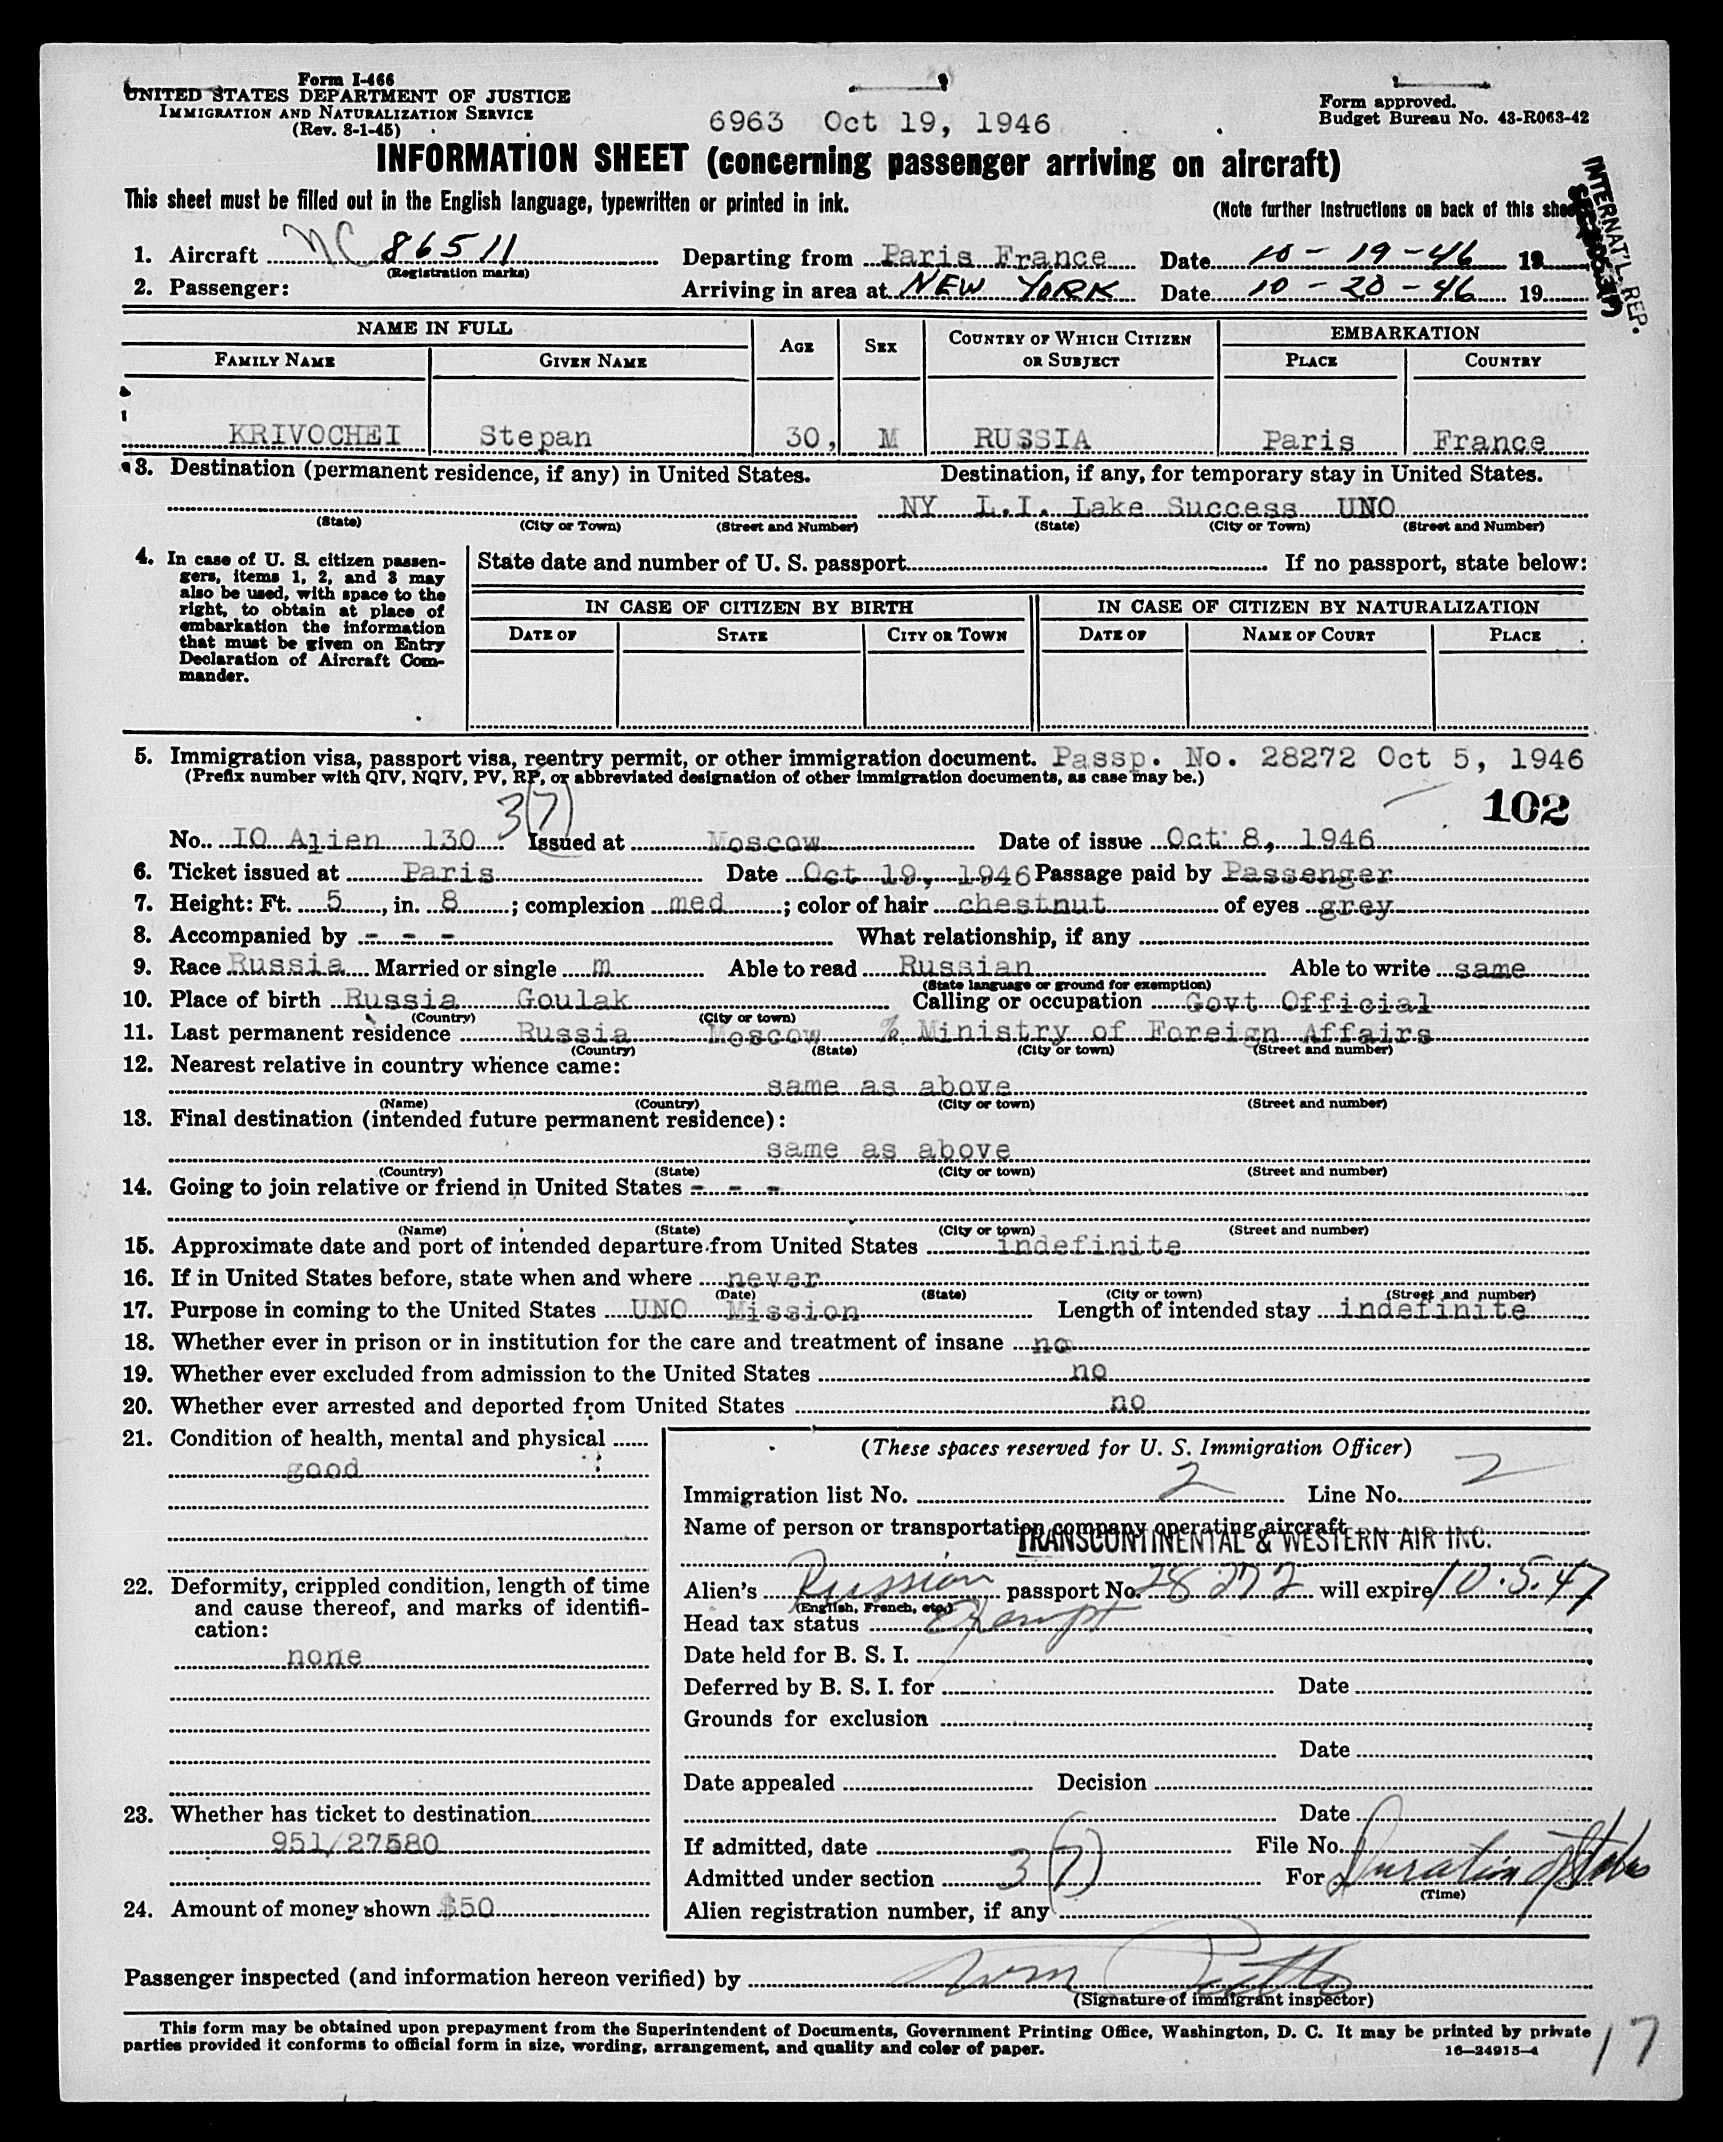 Form I-466
UNITED STATES DEPARTMENT OF JUSTICE
IMMIGRATION AND NATURALIZATION SERVICE
(Rev. 8-1-45)
6963 Oct 19, 1946
Form approved.
Budget Bureau No. 43-R063-42
INFORMATION SHEET (concerning passenger arriving on aircraft)
This sheet must be filled out in the English language, typewritten or printed in ink.
(Note further instructions on back of this sheet)
INTERNAT'L REP.
1. Aircraft NC 86511 Departing from Paris France Date 10-19-46 19
(Registration marks)
2. Passenger: Arriving in area at NEW YORK Date 10-20-46 19
NAME IN FULL AGE SEX COUNTRY OF WHICH CITIZEN OR SUBJECT EMBARKATION
FAMILY NAME GIVEN NAME PLACE COUNTRY
KRIVOCHEI Stepan 30, M RUSSIA Paris France
3. Destination (permanent residence, if any) in United States. Destination, if any, for temporary stay in United States.
NY L.I. Lake Success UNO
(State) (City or Town) (Street and Number) (State) (City or Town) (Street and Number)
4. In case of U. S. citizen passengers, items 1, 2, and 3 may also be used, with space to the right, to obtain at place of embarkation the information that must be given on Entry Declaration of Aircraft Commander.
State date and number of U. S. passport If no passport, state below:
IN CASE OF CITIZEN BY BIRTH IN CASE OF CITIZEN BY NATURALIZATION
DATE OF STATE CITY OR TOWN DATE OF NAME OF COURT PLACE
5. Immigration visa, passport visa, reentry permit, or other immigration document. Passp. No. 28272 Oct 5, 1946
(Prefix number with QIV, NQIV, PV, RP, or abbreviated designation of other immigration documents, as case may be.)
3(7) 102
No. IO Alien 130 Issued at Moscow Date of issue Oct 8, 1946
6. Ticket issued at Paris Date Oct 19, 1946 Passage paid by Passenger
7. Height: Ft. 5, in. 8; complexion med; color of hair chestnut of eyes grey
8. Accompanied by - - - What relationship, if any
9. Race Russia Married or single m Able to read Russian Able to write same
(State language or ground for exemption)
10. Place of birth Russia Goulak Calling or occupation Govt Official
(Country) (City or town)
11. Last permanent residence Russia Moscow % Ministry of Foreign Affairs
(Country) (State) (City or town) (Street and number)
12. Nearest relative in country whence came:
same as above
(Name) (Country) (City or town) (Street and number)
13. Final destination (intended future permanent residence):
same as above
(Country) (State) (City or town) (Street and number)
14. Going to join relative or friend in United States - - -
(Name) (State) (City or town) (Street and number)
15. Approximate date and port of intended departure from United States indefinite
16. If in United States before, state when and where never
(Date) (State) (City or town) (Street and number)
17. Purpose in coming to the United States UNO Mission Length of intended stay indefinite
18. Whether ever in prison or in institution for the care and treatment of insane no
19. Whether ever excluded from admission to the United States no
20. Whether ever arrested and deported from United States no
21. Condition of health, mental and physical
good
22. Deformity, crippled condition, length of time
and cause thereof, and marks of identifi-
cation:
none
23. Whether has ticket to destination
951/27580
24. Amount of money shown $50
(These spaces reserved for U. S. Immigration Officer)
Immigration list No. 2 Line No. 2
Name of person or transportation company operating aircraft
TRANSCONTINENTAL & WESTERN AIR INC.
Alien's Russian passport No. 28272 will expire 10.5.47
(English, French, etc.)
Head tax status Exempt
Date held for B. S. I.
Deferred by B. S. I. for Date
Grounds for exclusion
Date
Date appealed Decision
Date
If admitted, date File No.
Admitted under section 3(7) For Duration of Status
(Time)
Alien registration number, if any
Passenger inspected (and information hereon verified) by
(Signature of immigrant inspector)
This form may be obtained upon prepayment from the Superintendent of Documents, Government Printing Office, Washington, D. C. It may be printed by private
parties provided it conforms to official form in size, wording, arrangement, and quality and color of paper.
16-24915-4
17